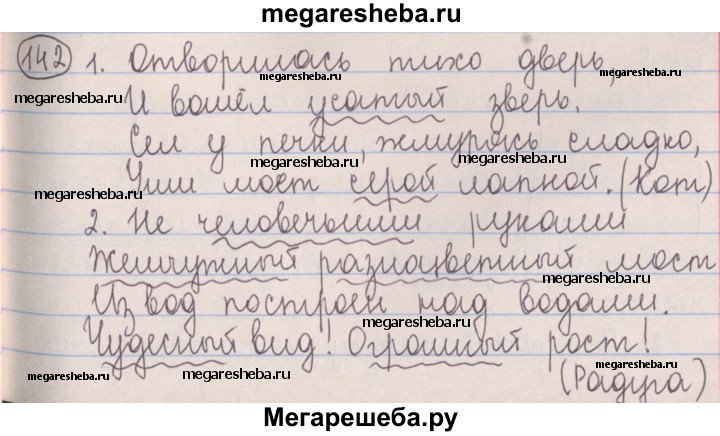 megaresheba.ru
142 1. Отворилась тихо дверь,
megaresheba.ru megaresheba.ru
megaresheba.ru
И вошёл усатый зверь.
megaresheba.ru
Сел у печки, жмурясь сладко,
megaresheba.ru megaresheba.ru
Умы моет серой лапкой. (Кот)
megaresheba.ru
2. Не человечьими руками
Жемчужный разноцветный мост
megaresheba.ru
Из вод построен над водами.
megaresheba.ru
Чудесный вид! Огромный рост!
megaresheba.ru megaresheba.ru megaresheba.ru
(Радуга)
Мегарешеба.ру